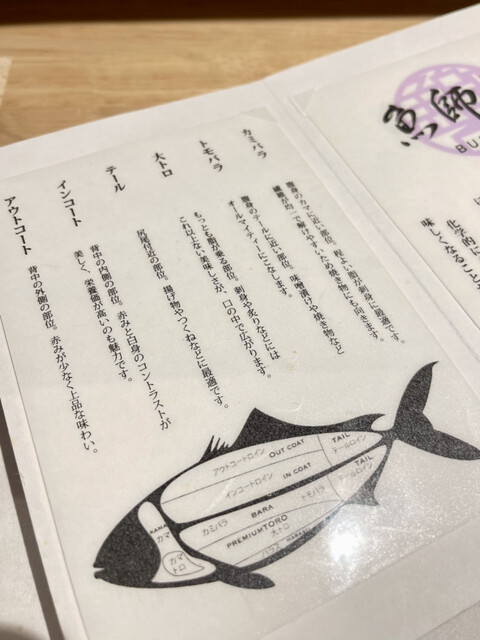 鰤師
BU
化学的に
味しくなること
カミバラ
腹身のカマに近い部位。程よい脂が刺身に最適です。
繊維が均一で解けやすいため焼き物にも向きます。
トモバラ
腹身のテールに近い部位。味噌漬けや焼き物など
オールマイティーにこなします。
大トロ
もっとも脂が乗る部位。刺身や炙りなどには
これ以上ない美味しさが、口の中で広がります。
テール
尻尾付近の部位。揚げ物やつくねなどに最適です。
インコート
背中の内側の部位。赤みと白身のコントラストが
美しく、栄養価が高いのも魅力です。
アウトコート
背中の外側の部位。赤みが少なく上品な味わい。
アウトコートロイン OUT COAT
TAIL
テールロイン
インコートロイン IN COAT
TAIL
テールロイン
KAMA
カマ
カミバラ BARA トモバラ
PREMIUMTORO
大トロ
カマ
トロ
ハラス